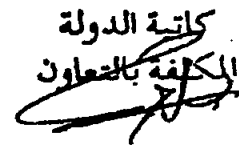 كاتبة الدولة
المكلفة بالتعاون